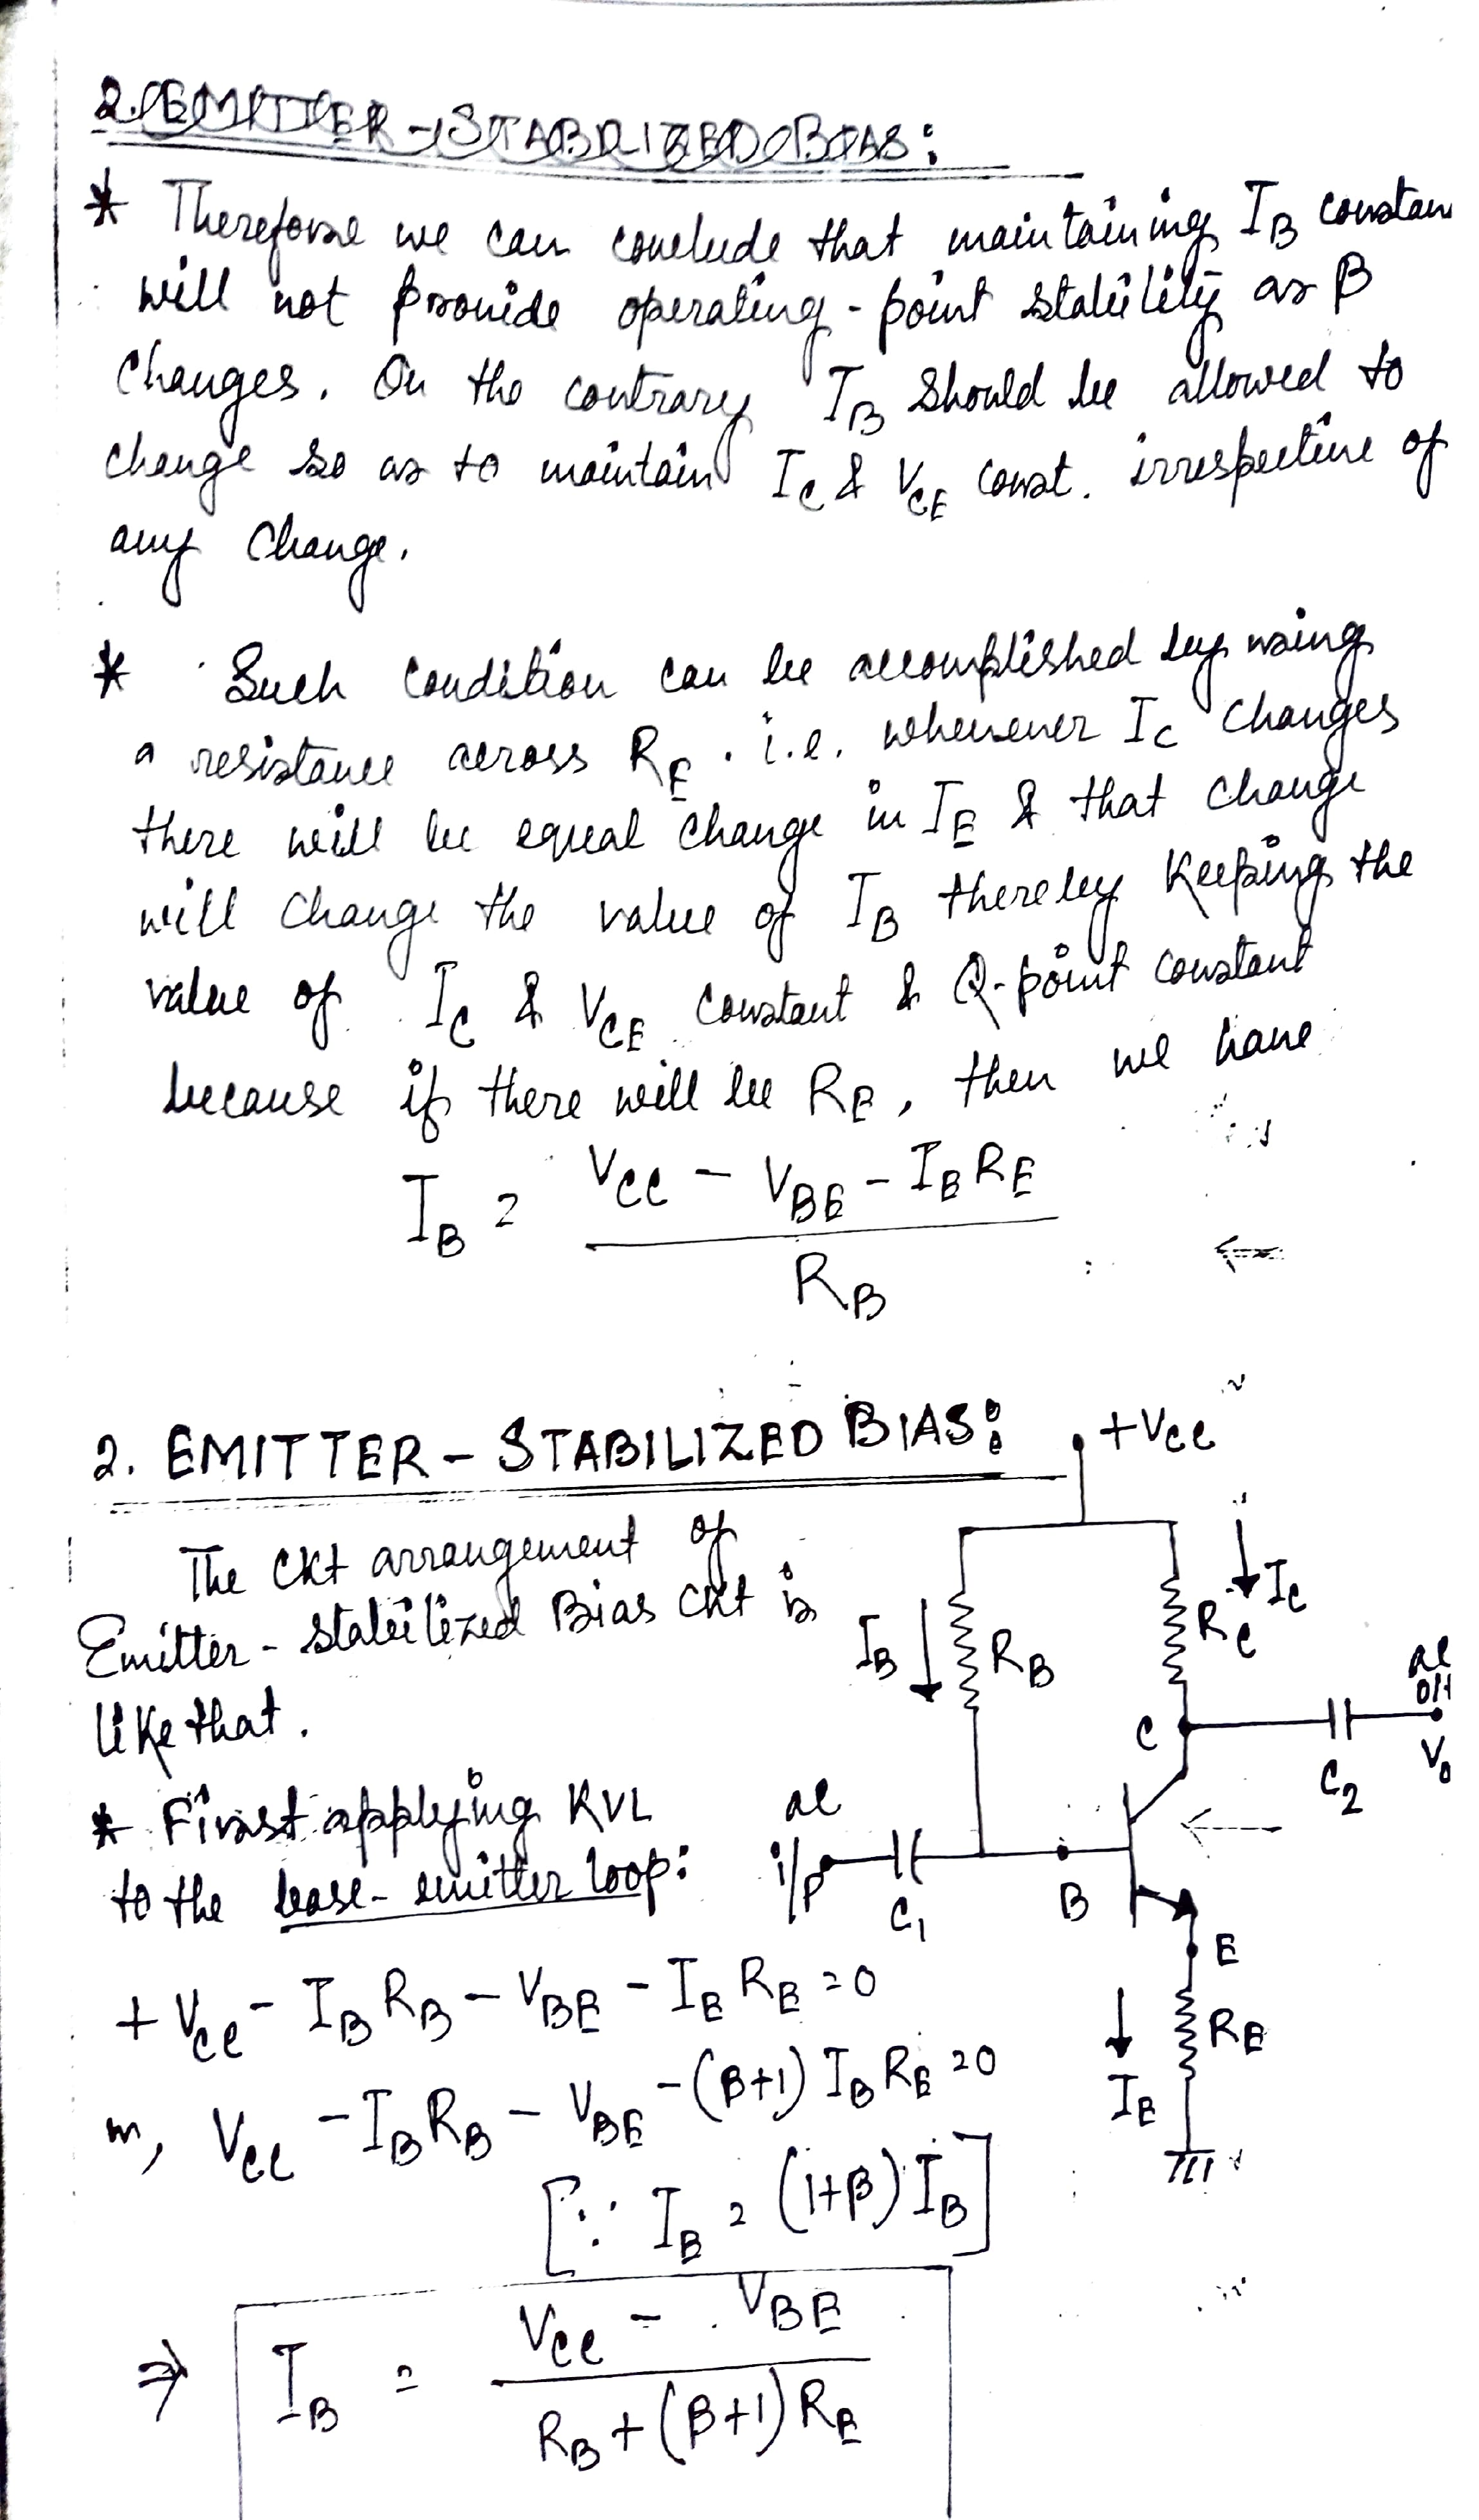 2. EMITTER - STABILIZED BIAS:
* Therefore we can conclude that maintaining I_B constan
will not provide operating-point stability as β
changes. On the contrary I_B should be allowed to
change so as to maintain I_C & V_CE const. irrespective of
any change.
* Such condition can be accomplished by using
a resistance across R_E. i.e. whenever I_C changes
there will be equal change in I_E & that change
will change the value of I_B thereby keeping the
value of I_C & V_CE constant & Q-point constant
because if there will be R_E, then we have
I_B = (V_CC - V_BE - I_E R_E) / R_B
2. EMITTER - STABILIZED BIAS:
+V_CC
The ckt arrangement of
Emitter - stabilized Bias ckt is
like that.
I_B
R_B
R_C
I_C
C
C_2
ac
o/p
V_0
* First applying KVL
to the base-emitter loop:
ac
i/p
C_1
B
E
R_E
I_E
+ V_CC - I_B R_B - V_BE - I_E R_E = 0
or, V_CC - I_B R_B - V_BE - (β+1) I_B R_E = 0
[∵ I_E = (1+β) I_B]
⇒ I_B = (V_CC - V_BE) / (R_B + (β+1) R_E)